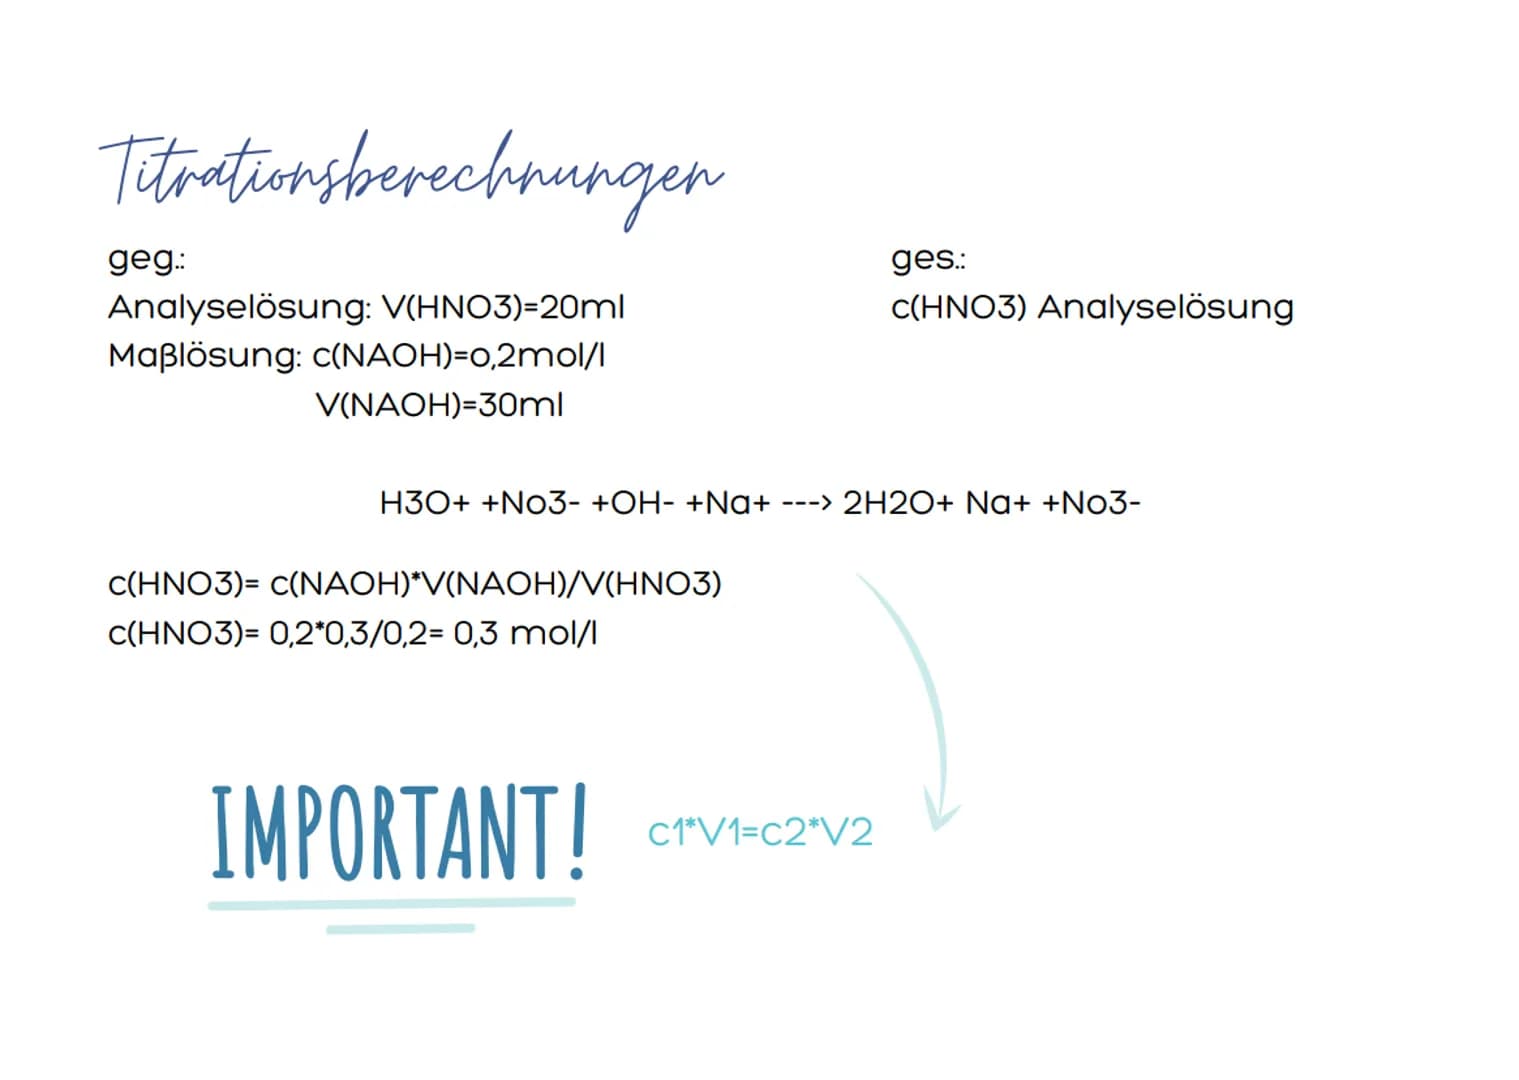 Titrationsberechnungen
geg.:
Analyselösung: V(HNO3)=20ml
Maßlösung: c(NAOH)=o,2mol/l
V(NAOH)=30ml
ges.:
c(HNO3) Analyselösung
H3O+ +No3- +OH- +Na+ ---> 2H2O+ Na+ +No3-
c(HNO3)= c(NAOH)*V(NAOH)/V(HNO3)
c(HNO3)= 0,2*0,3/0,2= 0,3 mol/l
IMPORTANT!
c1*V1=c2*V2